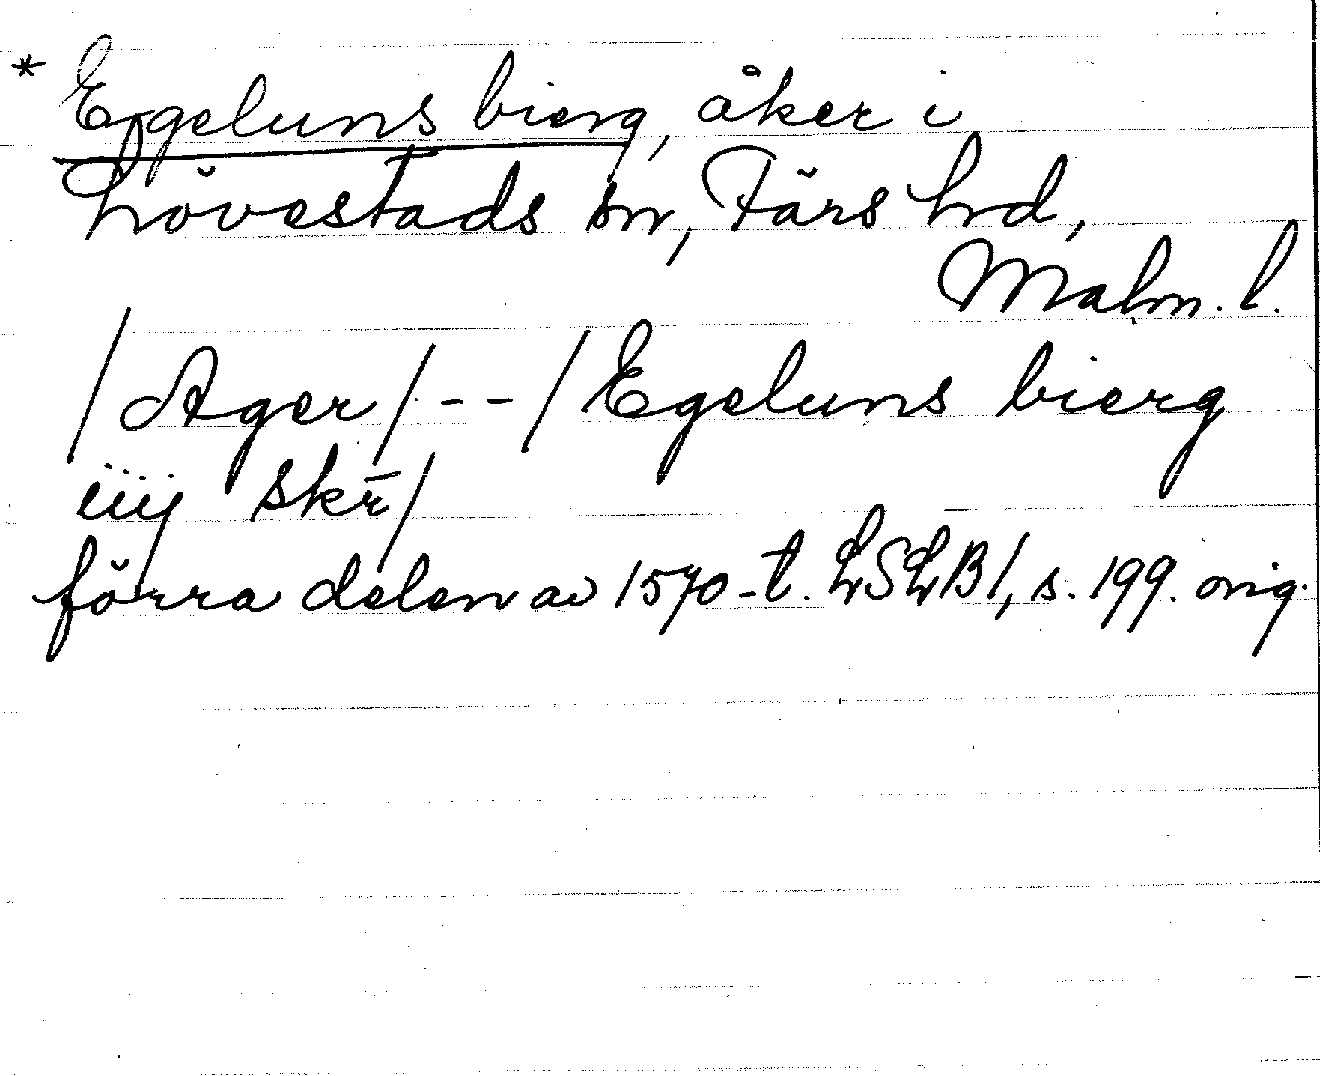 * Egeluns bierg, åker i
Lövestads sn, Färs hd,
Malm. l.
/Ager/--/Egeluns bierg
iiij skr̄/
förra delen av 1570-t. LSLB1, s. 199. orig.